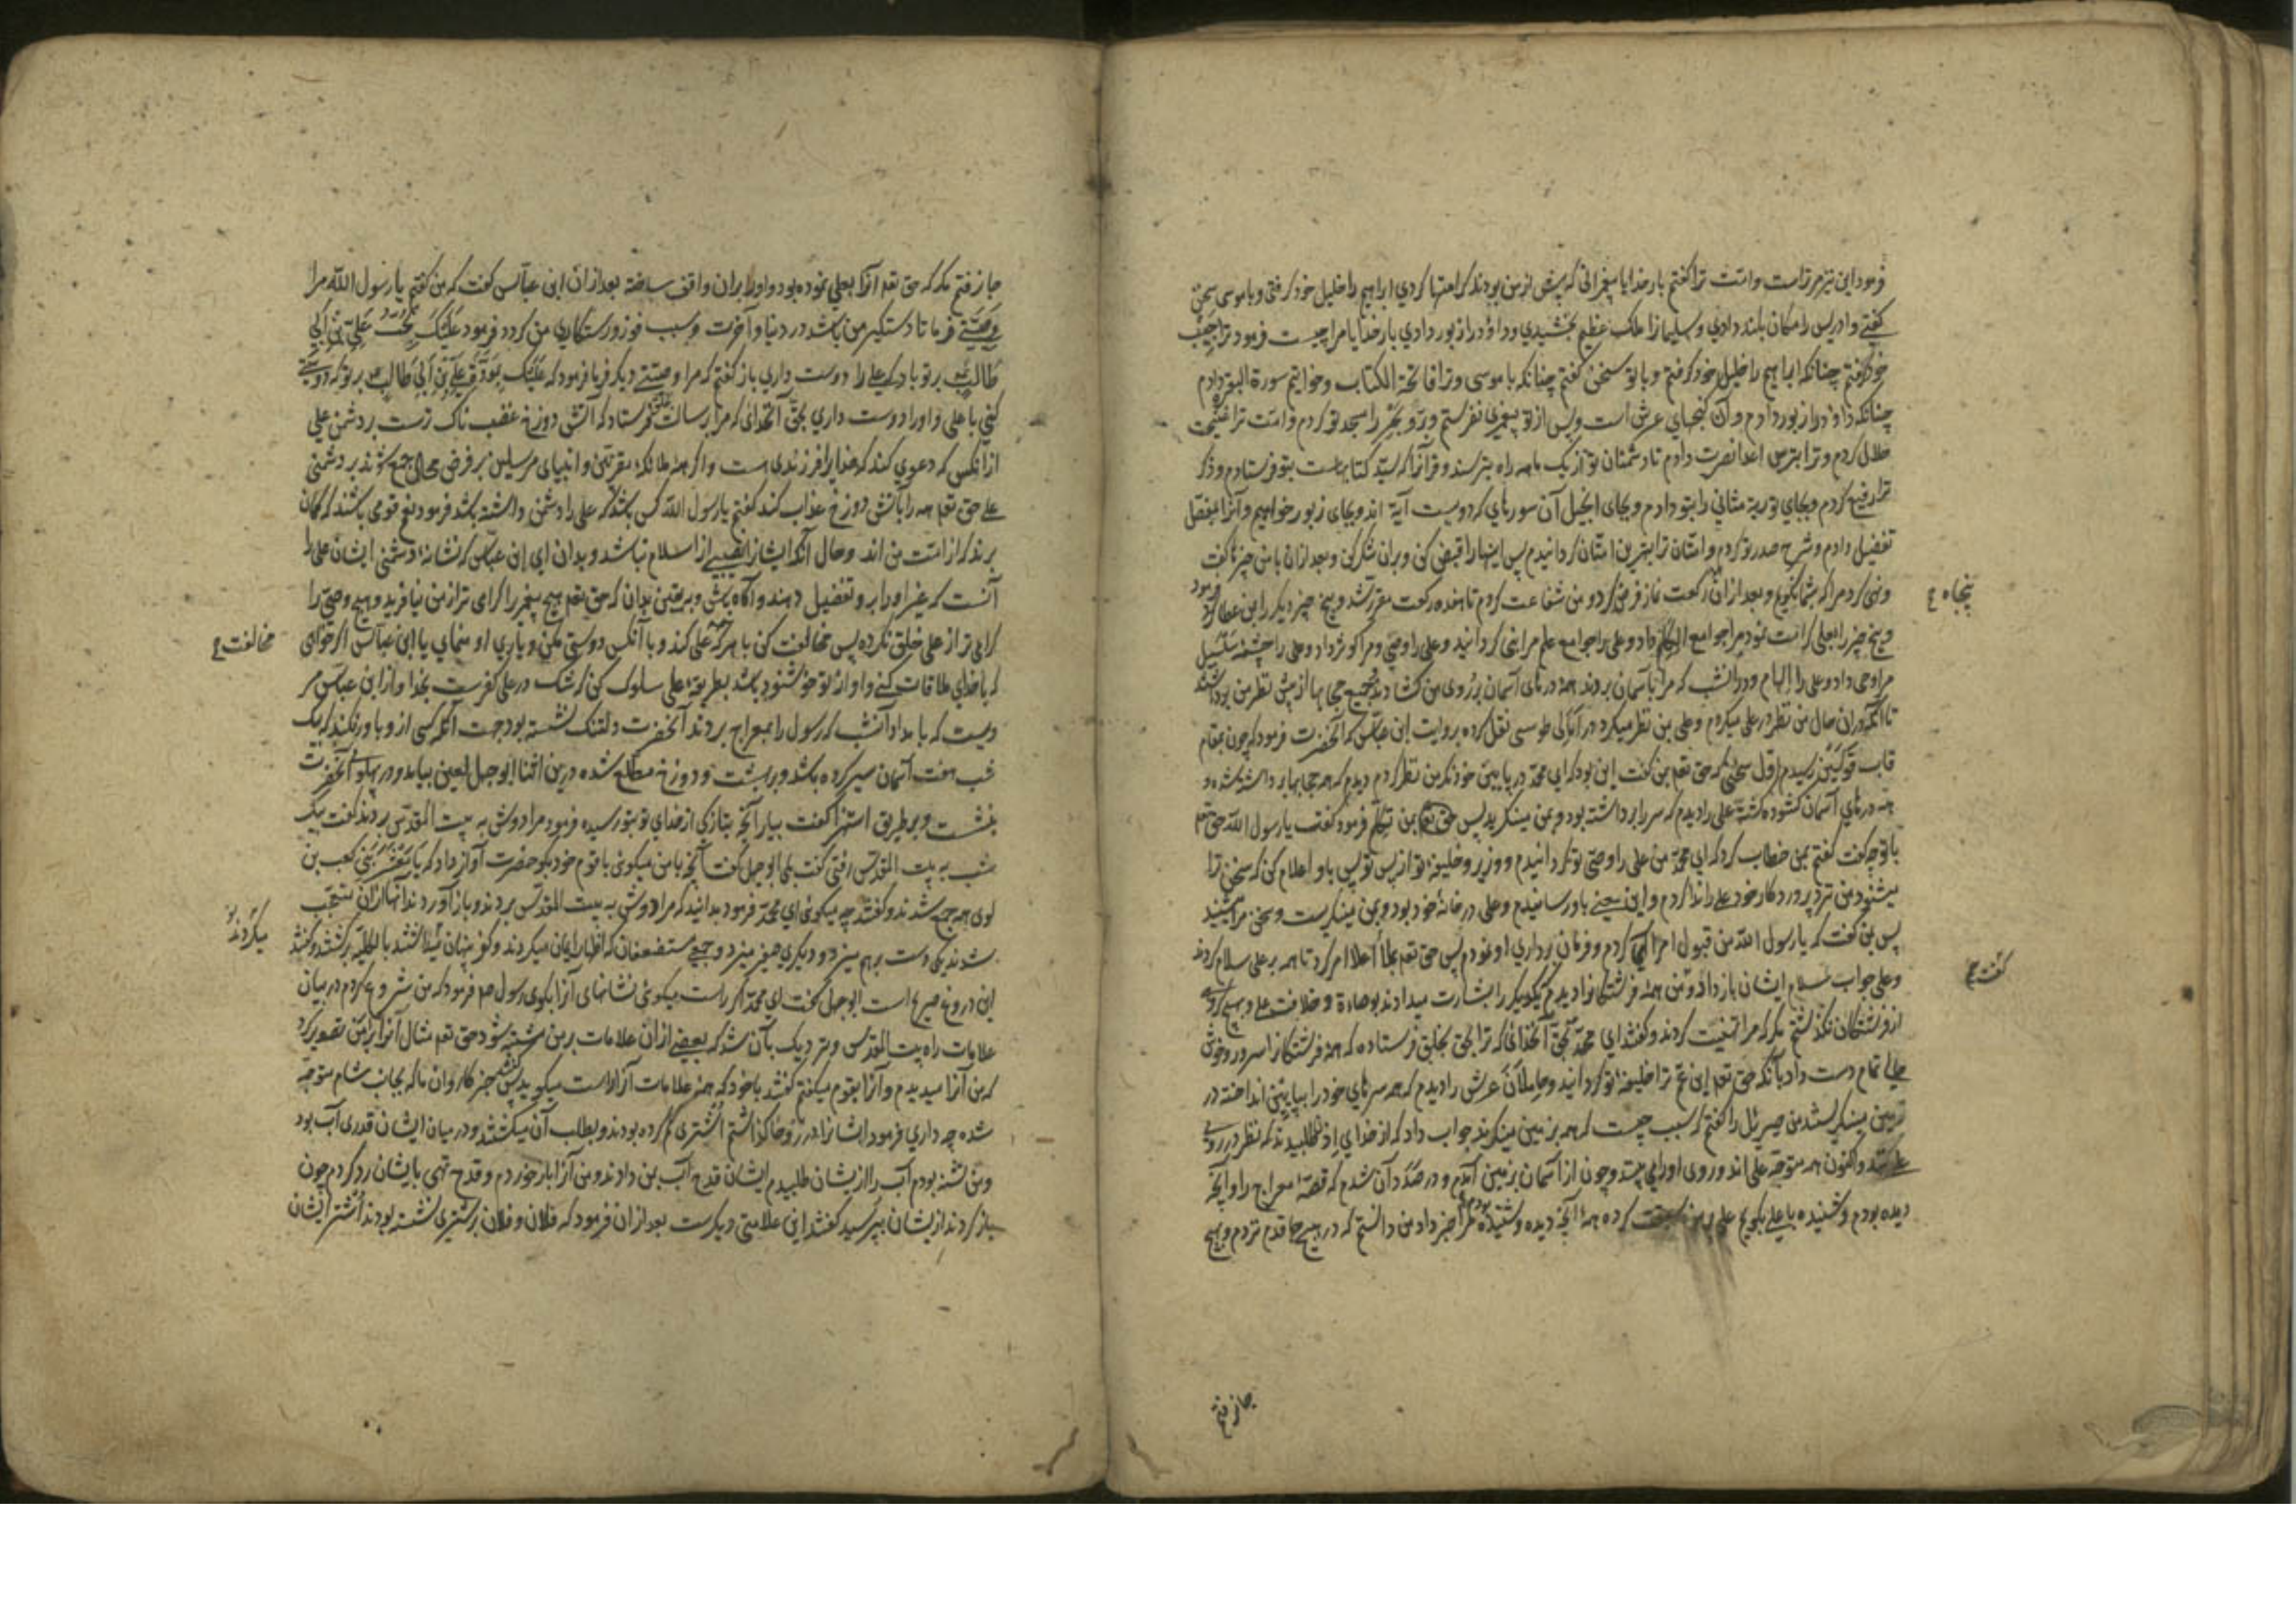 فرمود این نیز مر تراست و امّت ترا گفتم بار خدایا پیغمبرانی که پیش از من بودند کرامتها کردی ابراهیم را خلیل خود گرفتی و با موسی سخن
گفتی و ادریس را مکان بلند دادی و سلیمانرا ملک عظیم بخشیدی و داؤد را زبور دادی بار خدایا مرا چیست فرمود ترا حبیب
خود گرفتم چنانکه ابراهیم را خلیل خود گرفتم و با تو سخن گفتم چنانکه با موسی و ترا فاتحة الکتاب و خواتیم سورة البقر دادم
چنانکه داؤد را زبور دادم و آن گنجهای عرش است و پس از تو پیغمبری نفرستم و برّ و بحر را مسجد تو کردم و امّت ترا غنیمت
حلال کردم و ترا بترس اعدا نصرت دادم تا دشمنان تو از یک ماهه راه بترسند و قرآنرا که سیّد کتابهاست بتو فرستادم و ذکر
ترا رفیع کردم و بجای توریة مثانی را بتو دادم و بجای انجیل آن سورهای که دویست آیة اند و بجای زبور حوامیم و آنرا بمفصّل
تفضیل دادم و شرح صدر تو کردم و امّتان ترا بهترین امّتان گردانیدم پس اینها را قبض کن و بران شکر کن و بعد ازان با من چیزها گفت
و نهی کرد مرا که بشما بگویم و بعد ازان رکعت نماز فرض کرد و من شفاعت کردم تا هفده رکعت مقرّر شد و پنج چیز دیگر را بمن عطا فرمود
پنجاه ع
و پنج چیز را بعلی کرامت نمود مرا جوامع الکلم داد و علی را جوامع علم مرا نبی گردانید و علی را وصی و مرا کوثر داد و علی را چشمهٔ سلسبیل
مرا وحی داد و علی را الهام و در انشب که مرا بآسمان بردند همهٔ درهای آسمان بر روی من گشادند و جمیع حجابها از پیش نظر من برداشتند
تا آنکه دران حال من نظر در علی میکردم و علی بمن نظر میکرد در آمالی طوسی نقل کرده بروایت ابن عبّاس که آنحضرت فرمود که چون بمقام
قاب قوسین رسیدم اوّل سخنی که حق تعم بمن گفت این بود که ای محمّد در پایین خود نگر من نظر کردم دیدم که همه حجابها برداشته شده و
همه درهای آسمان گشوده گشته علی را دیدم که سر را برداشته بود و بمن مینگرید پس حق تعم بمن تکلّم فرمود گفت یا رسول الله حق تعم
با تو چه گفت گفتم بمن خطاب کرد که ای محمّد من علی را وصی تو گردانیدم و وزیر و خلیفهٔ تو از پس تو پس باو اعلام کن که سخن ترا
میشنود من نزد پروردگار خود علی را ندا کردم و این سخن باو رسانیدم و علی در خانهٔ خود بود و بمن مینگریست و سخن مرا میشنید
پس بمن گفت که یا رسول الله من قبول امر کردم و فرمان برداری او نمودم پس حق تعم بملأ اعلا امر کرد تا همه بر علی سلام کردند
و علی جواب سلام ایشان باز داد و من همهٔ فرشتگانرا دیدم که یکدیگر را بشارت میدادند بوصایة و خلافت علی و بهیچ گروهی
گفت ع
از فرشتگان نگذشتم مگر که مرا تهنیت کردند و گفتند ای محمّد بحقّ آنخدائی که ترا بحق بخلق فرستاده که همهٔ فرشتگانرا سرور و خوش
حالی تمام دست داد بآنکه حق تعم ابن عمّ ترا خلیفهٔ تو گردانید و حاملان عرش را دیدم که همه سرهای خود را بپایین انداخته در
زمین مینگریستند من جبرئیل را گفتم که سبب چیست که همه بزمین مینگرند جواب داد که از خدای اذن طلبیدند که نظر در روی
علی کنند و اکنون همه متوجّه علی اند و روی او را می بینند و چون از آسمان بزمین آمدم و در صدد آن شدم که قصهٔ معراج را و آنچه
دیده بودم و شنیده با علی بگویم علی بر من سبقت کرده همهٔ آنچه دیده و شنیده بودم مرا خبر داد من دانستم که در هیچ جا قدم نزدم و بهیچ
جا نرفتم
جا نرفتم مگر که حق تعم آنرا بعلی نموده بود و او را بران واقف ساخته بعد ازان ابن عبّاس گفت که من گفتم یا رسول الله مرا
وصیّتی فرما تا دستگیر من باشد در دنیا و آخرت و سبب فوز و رستگاری من گردد فرمود عَلَیْکَ بِحُبّ عَلِیّ بْنِ اَبِی
طالب بر تو باد که علی را دوست داری باز گفتم که مرا وصیّتی دیگر فرما فرمود که عَلَیْکَ بِمَوَدَّةِ عَلِیِّ بْنِ اَبِی طالِب بر تو که دوستی
کنی با علی و او را دوست داری بحق آنخدائی که مرا برسالت بخلق فرستاد که آتش دوزخ غضب ناک ترست بر دشمن علی
ازانکس که دعوی کند که خدایرا فرزندی هست و اگر همهٔ ملائکهٔ مقرّبین و انبیای مرسلین بر فرض محال جمع شوند بر دشمنی
علی حق تعم همه را بآتش دوزخ عذاب کند گفتم یا رسول الله کس باشد که علی را دشمن داشته باشد فرمود نعم قومی باشند که گمان
برند که از امّت من اند و حال آنکه ایشانرا نصیبی از اسلام نباشد و بدان ای ابن عبّاس که نشانهٔ دشمنی ایشان علی را
آنست که غیر او را برو تفضیل دهند و آگاه باش و بیقین بدان که حق تعم هیچ پیغمبر را گرامی تر از من نیافرید و هیچ وصیّ را
گرامی تر از علی خلق نکرده پس مخالفت کن با هر که علی کند و با آنکس دوستی مکن و یاری او منمای یا ابن عبّاس اگر خواهی
مخالفت ع
که با خدای ملاقات کنی و او از تو خوشنود باشد بطریقهٔ علی سلوک کن که شک در علی کفرست بخدا و از ابن عبّاس مر
ویست که بامداد آنشب که رسول را بمعراج بردند آنحضرت دلتنگ نشسته بود جهت آنکه کسی ازو باور نکند که یک
شب هفت آسمان سیر کرده باشد و بر بهشت و دوزخ مطّلع شده درین اثنا ابوجهل لعین بیامد و در پهلو آنحضرت
بنشست و بر طریق استهزا گفت بیار آنچه بتازگی از خدای تو بتو رسیده فرمود مرا دوش به بیت المقدّس بردند گفت بیک
شب به بیت المقدّس رفتی گفت بلی ابوجهل گفت آنچه با من میگوئی با قوم خود بگو حضرت آواز داد که یا مَعْشَرَ بَنِی کعب بن
لوی همه جمع شدند و گفتند چه میگوئی ای محمّد فرمود بدانید که مرا دوش به بیت المقدّس بردند و باز آوردند آنها ازان متعجّب
شدند یکی دست بر هم میزد و دیگری صفیر میزد و جمعی مستضعفان که اظهار ایمان میکردند و کفر پنهان میداشتند بالکلیّه برگشتند و گفتند
میکردند
این دروغ صریح است ابوجهل گفت ای محمّد اگر راست میگوئی نشانهای آنرا بگوی رسول صم فرمود که من شروع کردم در بیان
علامات راه بیت المقدّس و نزدیک بآن شد که بعضی ازان علامات بر من مشتبه شود حق تعم مثال آنرا برابر من تصویر کرد
که من آنرا میدیدم و آنرا بقوم میگفتم گفتند با خود که همهٔ علامات آنرا راست میگوید پس گفتند خبر کاروان ما که بجانب شام متوجّه
شده چه داری فرمود ایشانرا در روحا گذاشتم اُشتری گم کرده بودند و بطلب آن میگشتند و در میان ایشان قدری آب بود
و من تشنه بودم آب را از یشان طلبیدم ایشان قدح آب بمن دادند و من آنرا باز خوردم و قدح تهی بایشان رد کردم چون
باز گردند ازیشان بپرسید گفتند این علامتی دیگرست بعد ازان فرمود که فلان و فلان بر شتری نشسته بودند اُشتر ایشان